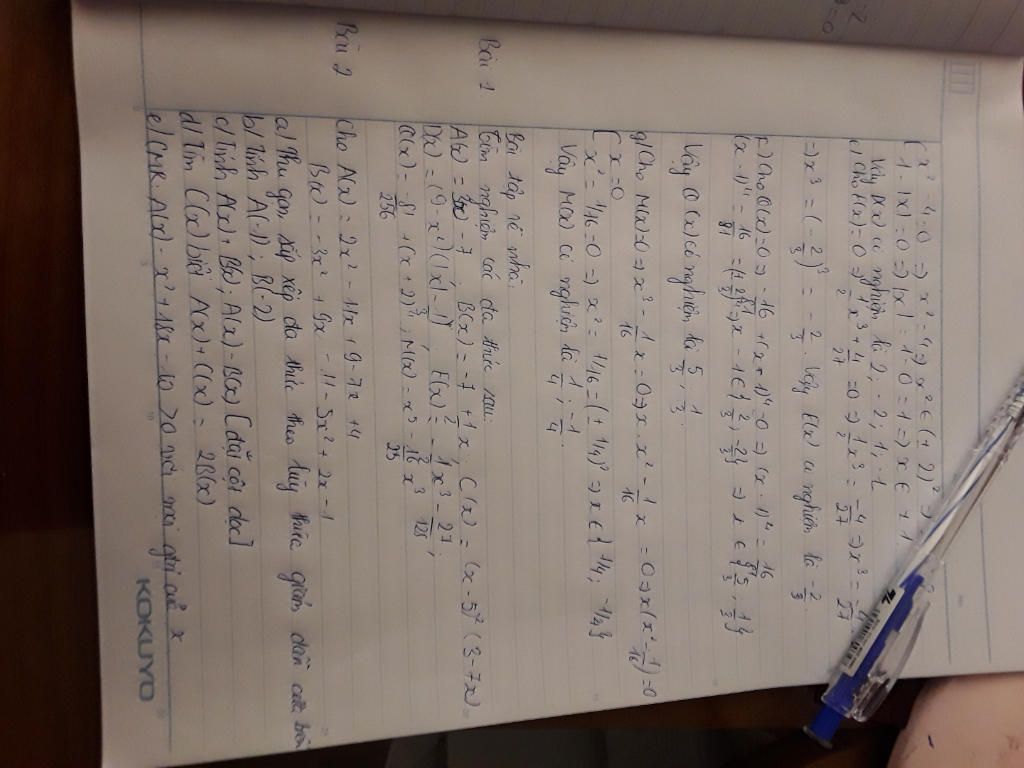 x² - 4 = 0 => x² = 4 => x² ∈ (± 2)²
1 - |x| = 0 => |x| = 1 - 0 = 1 => x ∈ ± 1
Vậy D(x) có nghiệm là 2; -2; 1; -1
e) Cho H(x) = 0 => 1/2 x³ + 4/27 = 0 => 1/2 x³ = -4/27 => x³ =
=> x³ = (-2/3)³ = -2/3. Vậy E(x) có nghiệm là -2/3.
Cho Q(x) = 0 => -16/81 + (x - 1)⁴ = 0 => (x - 1)⁴ = 16/81
(x - 1)⁴ = => x - 1 ∈ {2/3, -2/3} => x ∈ {5/3, 1/3}
Vậy Q(x) có nghiệm là 5/3, 1/3.
g) Cho M(x) = 0 => x³ - 1/16 x = 0 => x . x² - 1/16 x = 0 => x(x² - 1/16) = 0
x = 0
x² - 1/16 = 0 => x² = 1/16 = (± 1/4)² => x ∈ {1/4; -1/4}
Vậy M(x) có nghiệm là 1/4; -1/4
Bài tập về nhà:
Bài 1 Tìm nghiệm các đa thức sau:
A(x) = x + 7; B(x) = -7 + 1/2 x; C(x) = (x - 5)² (3 - 7x)
D(x) = (9 - x²)(|x| - 1); E(x) = 1/2 x³ - 27/128;
Q(x) = -81/256 + (x + 2); M(x) = x⁵ - 16/25 x³
Bài 2 Cho A(x) = 2x² - 11x + 9 - 7x + 4
B(x) = -3x² + 9x - 11 - 5x² + 2x - 1
a) Thu gọn, sắp xếp đa thức theo lũy thừa giảm dần của biến
b) Tính A(-1); B(-2)
c) Tính A(x) + B(x); A(x) - B(x) [đặt cột dọc]
d) Tìm C(x) biết A(x) + C(x) = 2B(x)
e) CMR: A(x) - x² + 18x - 10 > 0 với mọi giá trị x
KOKUYO